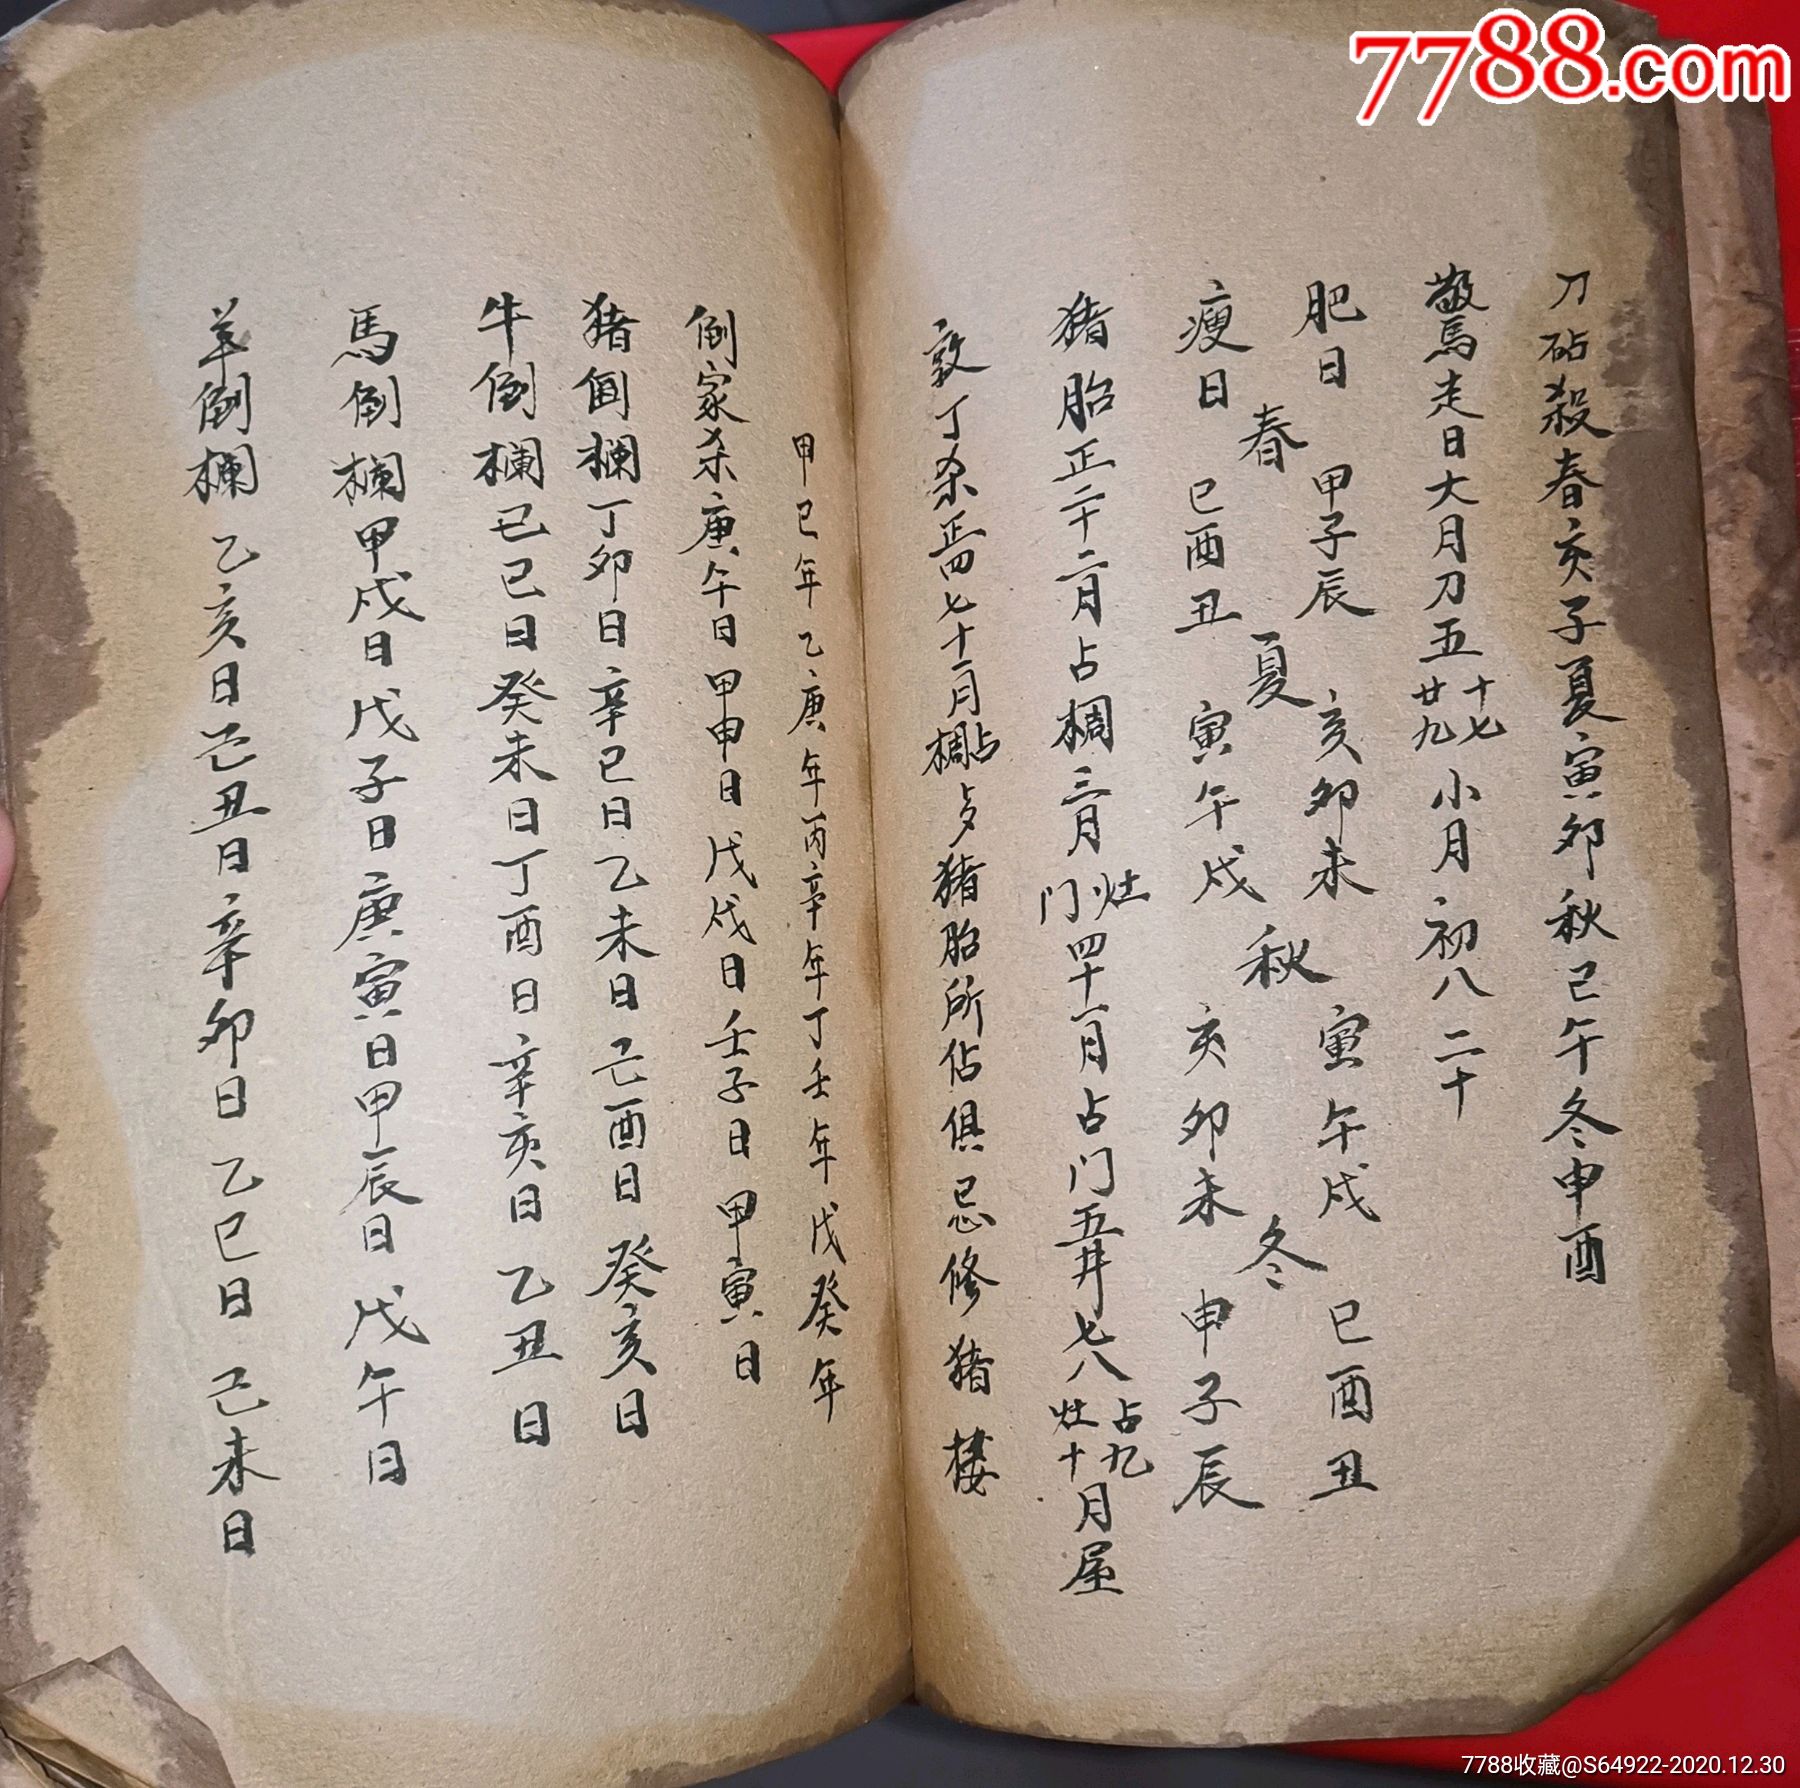 7788.com
刀砧殺春亥子夏寅卯秋巳午冬申酉
驚走日大月刀五十七廿九小月初八二十
肥日春甲子辰夏亥卯未秋寅午戌冬巳酉丑
瘦日巳酉丑寅午戌亥卯未申子辰
猪胎正二十二月占椆三月灶门四十一月占门五井七八占灶九十月屋
敦丁杀正四七十一月占椆 猪胎所佔俱忌修猪楼
甲己年乙庚年丙辛年丁壬年戊癸年
倒家杀庚午日甲申日戊戌日壬子日甲寅日
猪倒欄丁卯日辛巳日乙未日己酉日癸亥日
牛倒欄己巳日癸未日丁酉日辛亥日乙丑日
馬倒欄甲戌日戊子日庚寅日甲辰日戊午日
羊倒欄乙亥日己丑日辛卯日乙巳日己未日
7788收藏@S64922-2020.12.30